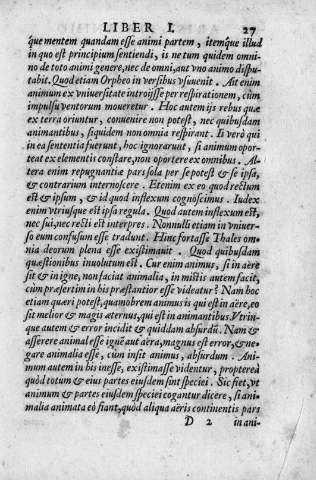 LIBER I. 27
que mentem quandam esse animi partem, itemq́ue illud
in quo est principium sentiendi, is ne tum quidem omni-
no de toto animi genere, nec de omni, aut vno animo dispu-
tabit. Quod etiam Orpheo in versibus vsuuenit. Ait enim
animum ex vniuersitate introijsse per respirationem, cùm
impulsu ventorum moueretur. Hoc autem ijs rebus quæ
ex terra oriuntur, conuenire non potest, nec quibusdam
animantibus, siquidem non omnia respirant. Ii verò qui
in ea sententia fuerunt, hoc ignorarunt, si animum opor-
teat ex elementis constare, non oportere ex omnibus. Al-
tera enim repugnantiæ pars sola per se potest & se ipsa,
& contrarium internoscere. Etenim ex eo quod rectum
est & ipsum, & id quod inflexum cognoscimus. Iudex
enim vtriusque est ipsa regula. Quod autem inflexum est,
nec sui, nec recti est interpres. Nonnulli etiam in vniuer-
so eum confusum esse tradunt. Hinc fortasse Thales om-
nia deorum plena esse existimauit. Quod quibusdam
quæstionibus inuolutum est. Cur enim animus, si in aëre
sit & in igne, non faciat animalia, in mistis autem facit,
cùm præsertim in his præstantior esse videatur? Nam hoc
etiam quæri potest, quamobrem animus is qui est in aëre, eo
sit melior & magis æternus, qui est in animantibus. Vtrin-
que autem & error incidit & quiddam absurdū. Nam &
asserere animal esse igné aut aëra, magnus est error, & ne-
gare animalia esse, cum insit animus, absurdum. Ani-
mum autem in his inesse, existimasse videntur, propterea
quòd totum & eius partes eiusdem sint speciei. Sic fiet, vt
animum & partes eiusdem speciei cogantur dicere, si ani-
malia animata eò fiant, quòd aliqua aëris continentis pars
D 2 in ani-